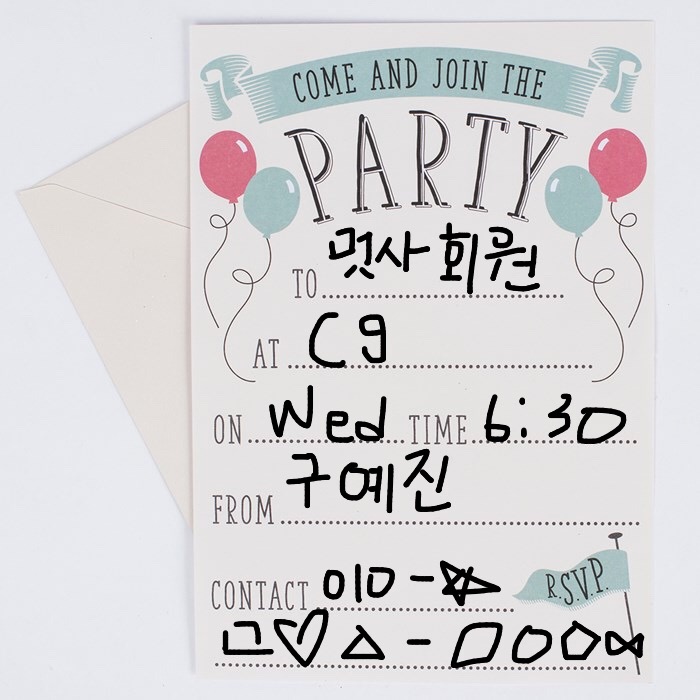 COME AND JOIN THE
PARTY
TO 멋사 회원
AT C9
ON Wed TIME 6:30
FROM 구예진
CONTACT 010-
R.S.V.P.